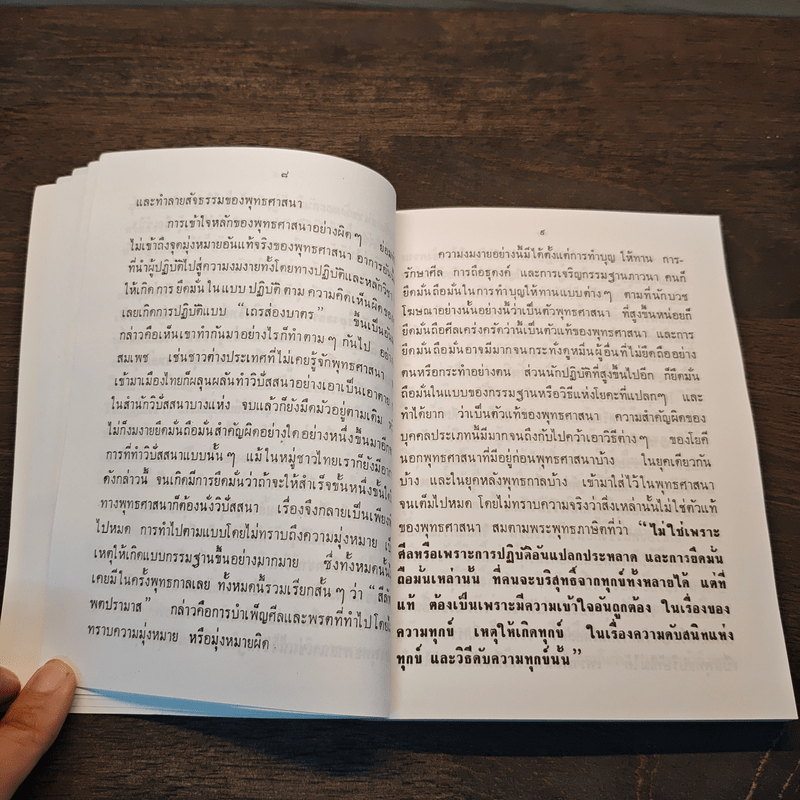 ๘
และทำลายสัจธรรมของพุทธศาสนา
การเข้าใจหลักของพุทธศาสนาอย่างผิดๆ
ไม่เข้าถึงจุดมุ่งหมายอันแท้จริงของพุทธศาสนา อาการอัน
ที่นำผู้ปฏิบัติไปสู่ความงมงายทั้งโดยทางปฏิบัติและหลักวิชา
ให้เกิดการยึดมั่นในแบบปฏิบัติตามความคิดเห็นผิดของ
เลยเกิดการปฏิบัติแบบ “เถรส่องบาตร” ขึ้นเป็นอัน
กล่าวคือเห็นเขาทำกันมาอย่างไรก็ทำตามๆ กันไป
สมเพช เช่นชาวต่างประเทศที่ไม่เคยรู้จักพุทธศาสนา
เข้ามาเมืองไทยก็ผลุนผลันทำวิปัสสนาอย่างเอาเป็นเอาตาย
ในสำนักวิปัสสนาบางแห่ง จบแล้วก็ยังมืดมัวอยู่ตามเดิม
ไม่ก็งมงายยึดมั่นถือมั่นสำคัญผิดอย่างใดอย่างหนึ่งขึ้นมาอีก
การที่ทำวิปัสสนาแบบนั้นๆ แม้ในหมู่ชาวไทยเราก็ยังมีอาการ
ดังกล่าวนี้ จนเกิดมีการยึดมั่นว่าถ้าจะให้สำเร็จชั้นหนึ่งชั้นใด
ทางพุทธศาสนาก็ต้องนั่งวิปัสสนา เรื่องจึงกลายเป็นเพียงพิธี
ไปหมด การทำไปตามแบบโดยไม่ทราบถึงความมุ่งหมาย
เหตุให้เกิดแบบกรรมฐานขึ้นอย่างมากมาย ซึ่งทั้งหมดนั้นไม่
เคยมีในครั้งพุทธกาลเลย ทั้งหมดนี้รวมเรียกสั้นๆ ว่า “สีลัพ
พตปรามาส” กล่าวคือการบำเพ็ญศีลและพรตที่ทำไปโดยไม่
ทราบความมุ่งหมาย หรือมุ่งหมายผิด
๙
ความงมงายอย่างนี้มีได้ตั้งแต่การทำบุญ ให้ทาน การ-
รักษาศีล การถือธุดงค์ และการเจริญกรรมฐานภาวนา คนก็
ยึดมั่นถือมั่นในการทำบุญให้ทานแบบต่างๆ ตามที่นักบวช
โฆษณาอย่างนั้นอย่างนี้ว่าเป็นตัวพุทธศาสนา ที่สูงขึ้นหน่อยก็
ยึดมั่นถือศีลเคร่งครัดว่านี้เป็นตัวแท้ของพุทธศาสนา และการ
ยึดมั่นถือมั่นอาจมีมากจนกระทั่งดูหมิ่นผู้อื่นที่ไม่ยึดถืออย่าง
ตนหรือกระทำอย่างตน ส่วนนักปฏิบัติที่สูงขึ้นไปอีก ก็ยึดมั่น
ถือมั่นในแบบของกรรมฐานหรือวิธีแห่งโยคะที่แปลกๆ และ
ทำได้ยาก ว่าเป็นตัวแท้ของพุทธศาสนา ความสำคัญผิดของ
บุคคลประเภทนี้มีมากจนถึงกับไปคว้าเอาวิธีต่างๆ ของโยคี
นอกพุทธศาสนาที่มีอยู่ก่อนพุทธศาสนาบ้าง ในยุคเดียวกัน
บ้าง และในยุคหลังพุทธกาลบ้าง เข้ามาใส่ไว้ในพุทธศาสนา
จนเต็มไปหมด โดยไม่ทราบความจริงว่าสิ่งเหล่านั้นไม่ใช่ตัวแท้
ของพุทธศาสนา สมตามพระพุทธภาษิตที่ว่า “ไม่ใช่เพราะ
ศีลหรือเพราะการปฏิบัติอันแปลกประหลาด และการยึดมั่น
ถือมั่นเหล่านั้น ที่คนจะบริสุทธิ์จากทุกข์ทั้งหลายได้ แต่ที่
แท้ ต้องเป็นเพราะมีความเข้าใจอันถูกต้อง ในเรื่องของ
ความทุกข์ เหตุให้เกิดทุกข์ ในเรื่องความดับสนิทแห่ง
ทุกข์ และวิธีดับความทุกข์นั้น”